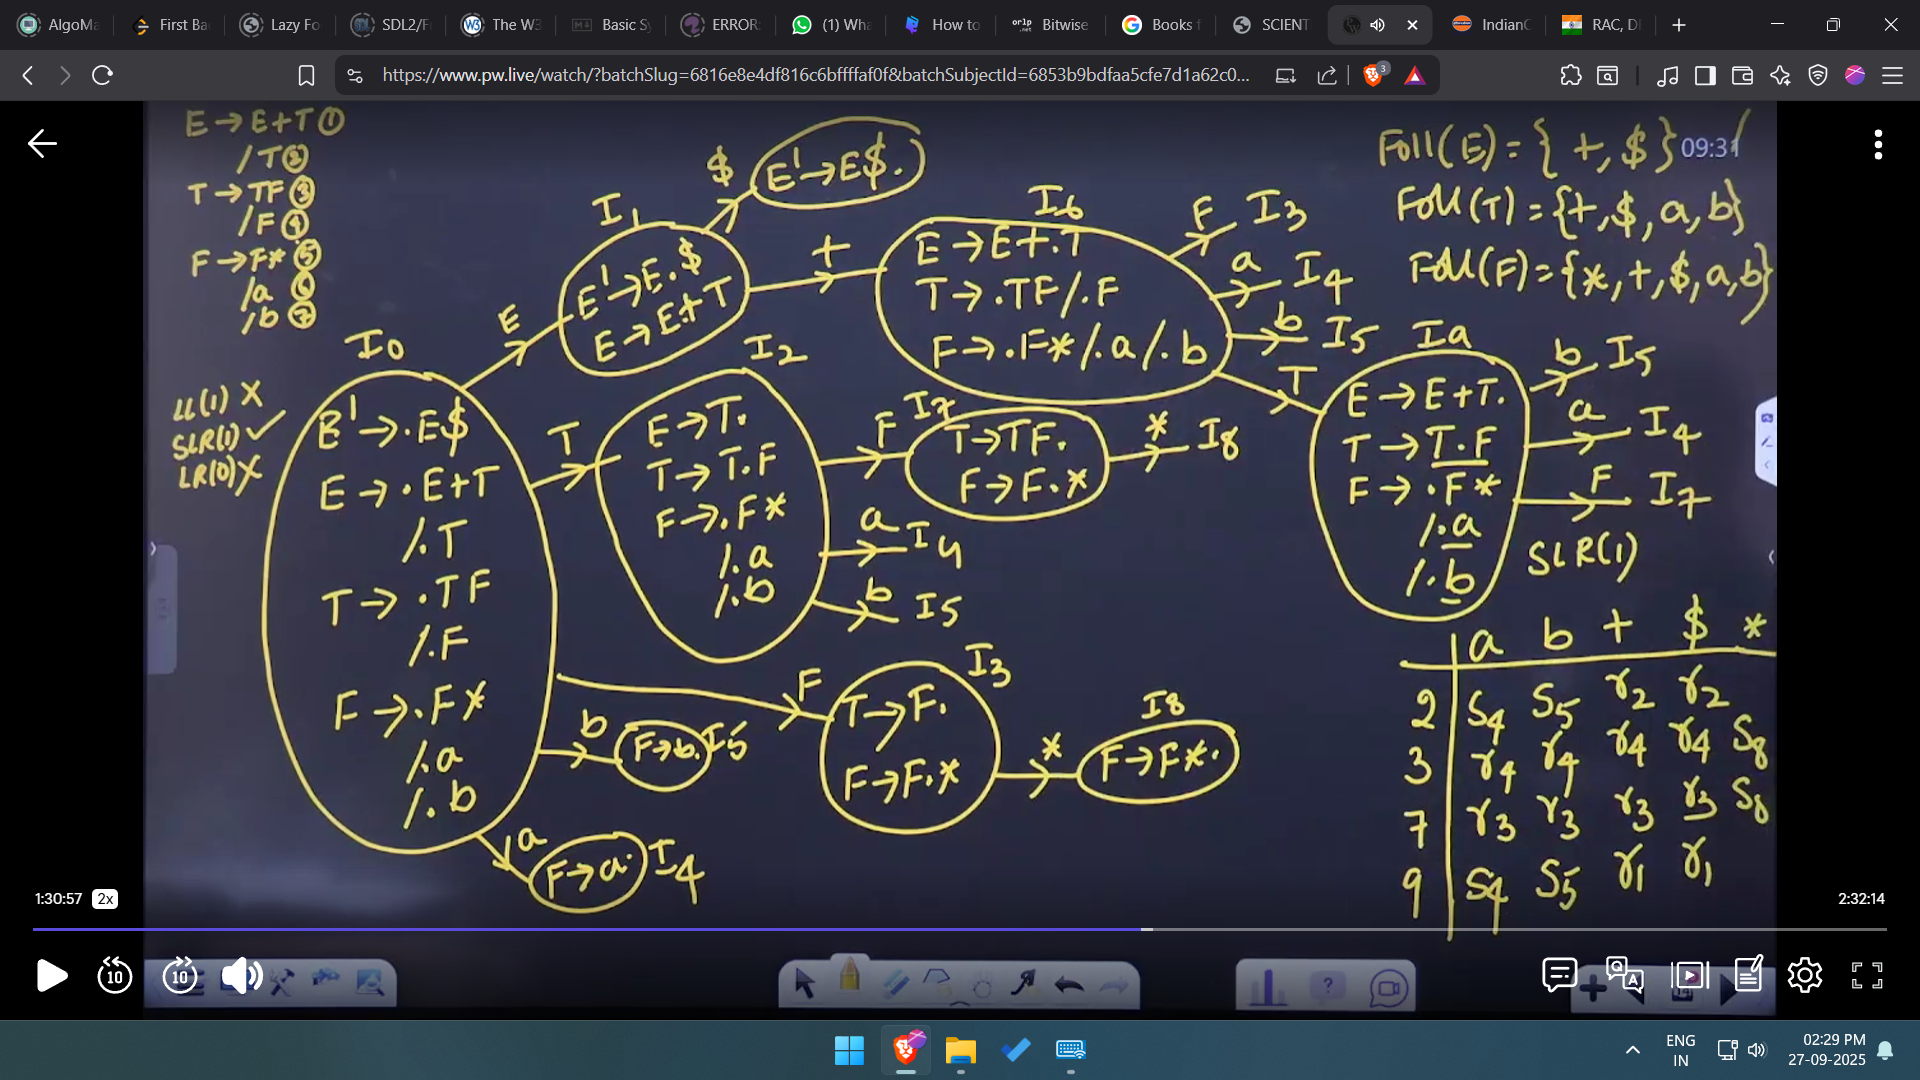 AlgoMa
First Ba
Lazy Fo
SDL2/F
The W3
Basic Sy
ERROR:
(1) Wha
How to
Bitwise
Books f
SCIENT
IndianC
RAC, D
https://www.pw.live/watch/?batchSlug=6816e8e4df816c6bffffaf0f&batchSubjectId=6853b9bdfaa5cfe7d1a62c0...
3
E → E+T ①
/T ②
T → TF ③
/F ④
F → F* ⑤
/a ⑥
/b ⑦
LL(1) X
SLR(1) ✓
LR(0) X
I0
E' → .E$
E → .E+T
/.T
T → .TF
/.F
F → .F*
/.a
/.b
E
I1
E' → E.$
E → E.+T
$
E' → E$.
+
I6
E → E+.T
T → .TF/.F
F → .F*/.a/.b
F I3
a I4
b I5
T
I9
E → E+T.
T → T.F
F → .F*
/.a
/.b
b I5
a I4
F I7
SLR(1)
T
I2
E → T.
T → T.F
F → .F*
/.a
/.b
F
I7
T → TF.
F → F.*
* I8
a I4
b I5
F
I3
T → F.
F → F.*
*
I8
F → F*.
b
F → b. I5
a
F → a. I4
Foll(E) = { +, $ }
09:31
Foll(T) = {+, $, a, b}
Foll(F) = {*, +, $, a, b}
a b + $ *
2 S4 S5 r2 r2
3 r4 r4 r4 r4 S8
7 r3 r3 r3 r3 S8
9 S4 S5 r1 r1
1:30:57 2x
2:32:14
10
10
ENG
IN
02:29 PM
27-09-2025